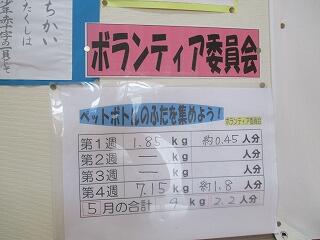 ちかい
たくしは
年赤十字の一員として
ボランティア委員会
ペットボトルのふたを集めよう!
ボランティア委員会
第1週 1.85 kg 約0.45人分
第2週 — kg 人分
第3週 — kg 人分
第4週 7.15 kg 約1.8 人分
5月の合計 9 kg 2.2 人分